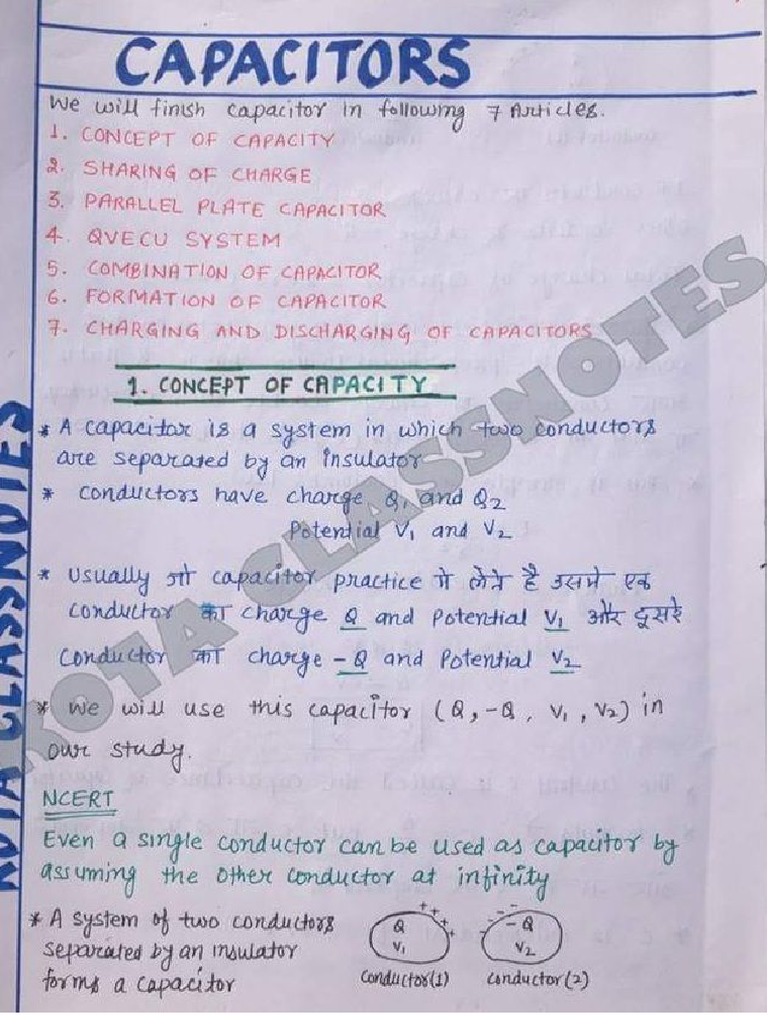 CAPACITORS
We will finish capacitor in following 7 Articles.
1. CONCEPT OF CAPACITY
2. SHARING OF CHARGE
3. PARALLEL PLATE CAPACITOR
4. QVECU SYSTEM
5. COMBINATION OF CAPACITOR
6. FORMATION OF CAPACITOR
7. CHARGING AND DISCHARGING OF CAPACITORS
1. CONCEPT OF CAPACITY
* A capacitor is a system in which two conductors
are separated by an insulator
* conductors have charge Q1 and Q2
Potential V1 and V2
* Usually जो capacitor practice मे लेते है उसमे एक
conductor का charge Q and Potential V1 और दूसरे
conductor का charge -Q and Potential V2
* We will use this capacitor (Q, -Q, V1, V2) in
our study.
NCERT
Even a single conductor can be used as capacitor by
assuming the other conductor at infinity
* A system of two conductors
separated by an insulator
forms a capacitor
Q
V1
conductor(1)
-Q
V2
conductor(2)
KOTA CLASSNOTES
KOTA CLASSNOTES